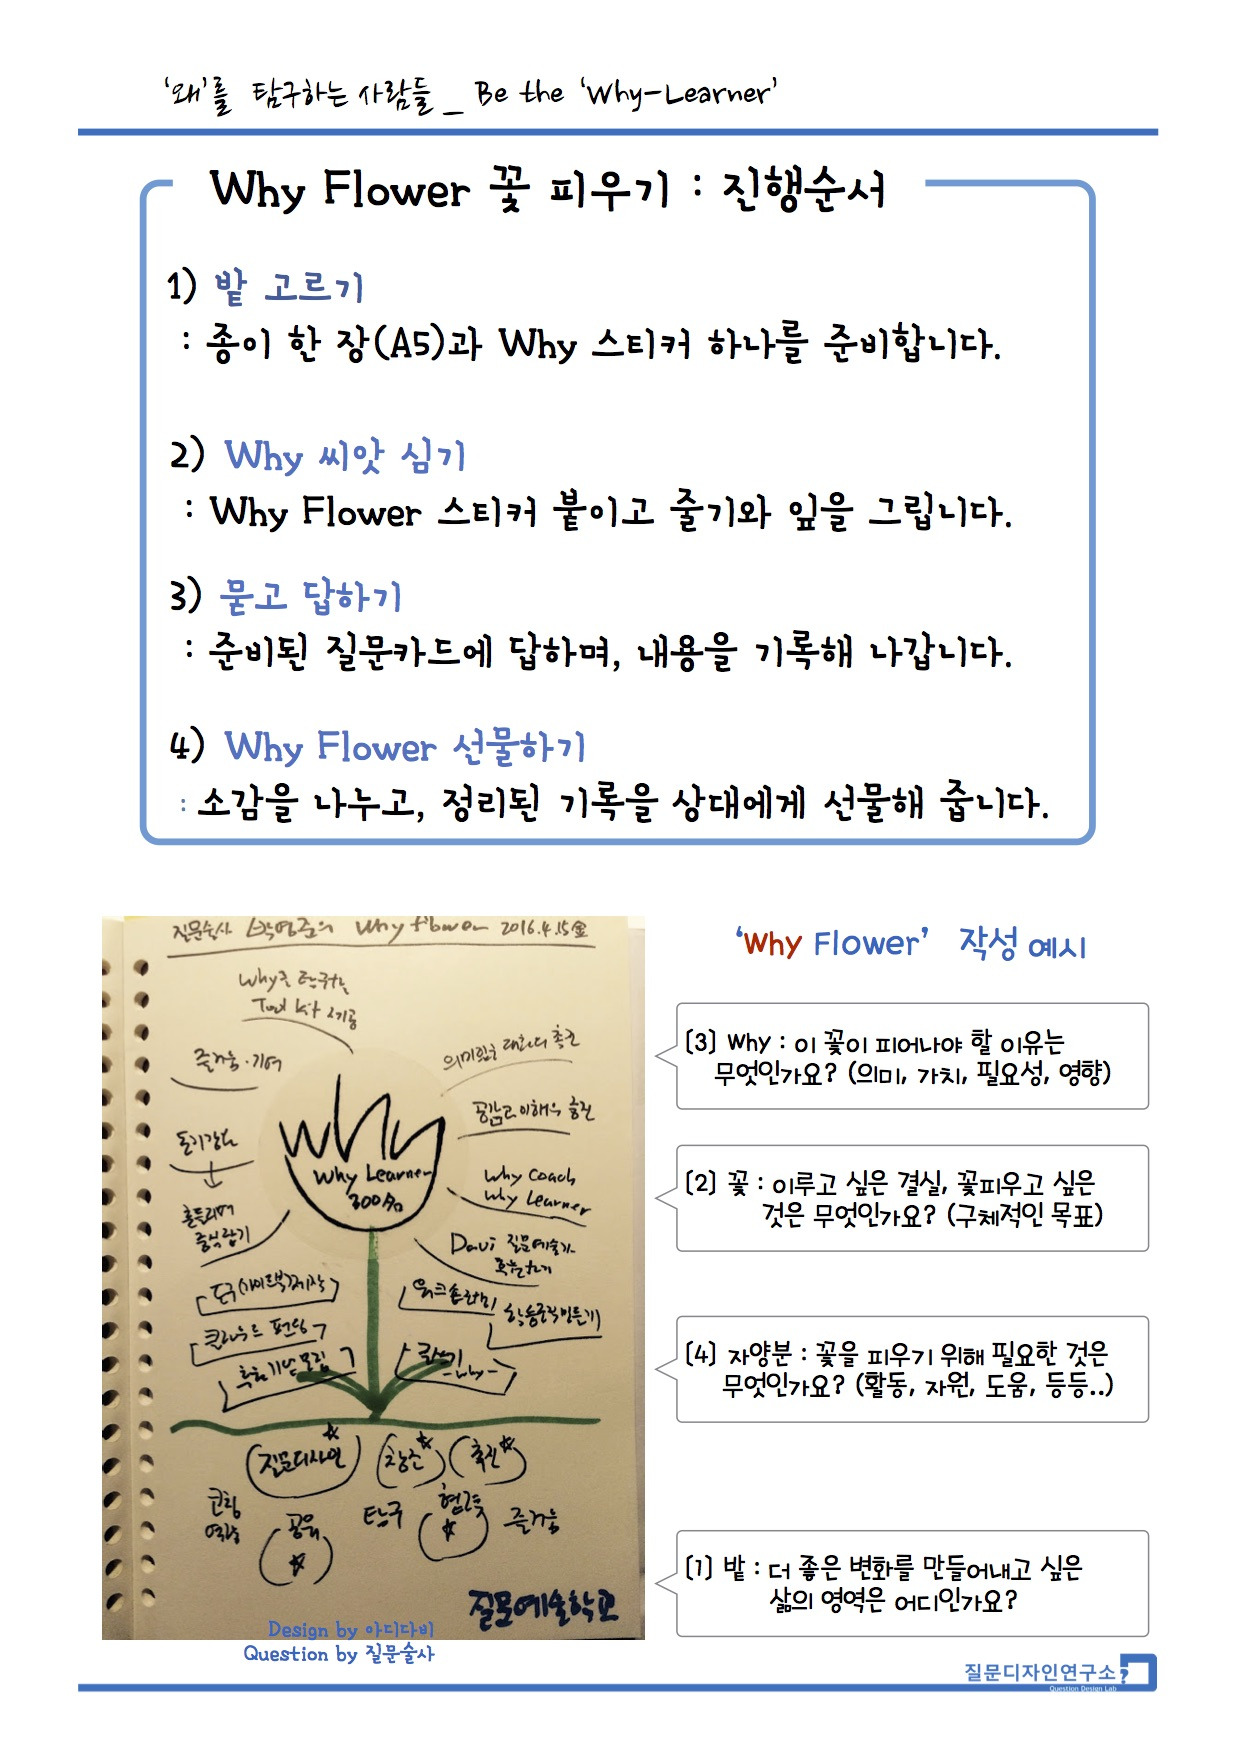 ‘왜’를 탐구하는 사람들 _ Be the ‘Why-Learner’
Why Flower 꽃 피우기 : 진행순서
1) 밭 고르기
: 종이 한 장(A5)과 Why 스티커 하나를 준비합니다.
2) Why 씨앗 심기
: Why Flower 스티커 붙이고 줄기와 잎을 그립니다.
3) 묻고 답하기
: 준비된 질문카드에 답하며, 내용을 기록해 나갑니다.
4) Why Flower 선물하기
: 소감을 나누고, 정리된 기록을 상대에게 선물해 줍니다.
질문술사 박영준의 Why flower 2016.4.15金
Why를 탐구하는
Tool Kit 제공
즐거움·기여
의미있는 대화의 촉진
공감과 이해의 증진
Why
Why Learner
300명
동기강화
흔들리며
중심잡기
Why Coach
Why Learner
Davi 질문예술가
클라우드 펀딩
질문디자인
창조
촉진
코칭
공유
탐구
협력
즐거움
질문예술학교
Design by 아디다비
Question by 질문술사
‘Why Flower’ 작성 예시
(3) Why : 이 꽃이 피어나야 할 이유는
무엇인가요? (의미, 가치, 필요성, 영향)
(2) 꽃 : 이루고 싶은 결실, 꽃피우고 싶은
것은 무엇인가요? (구체적인 목표)
(4) 자양분 : 꽃을 피우기 위해 필요한 것은
무엇인가요? (활동, 자원, 도움, 등등..)
(1) 밭 : 더 좋은 변화를 만들어내고 싶은
삶의 영역은 어디인가요?
질문디자인연구소
Question Design Lab